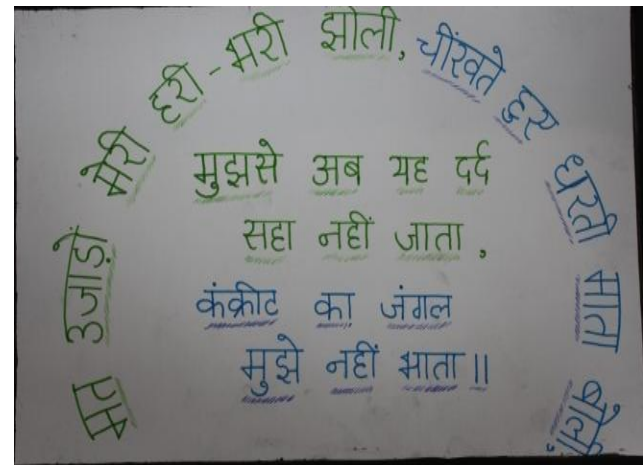 मत उजाड़ों मेरी हरी-भरी झोली, चींखते हुए धरती माता बोली,
मुझसे अब यह दर्द
सहा नहीं जाता,
कंक्रीट का जंगल
मुझे नहीं भाता ||